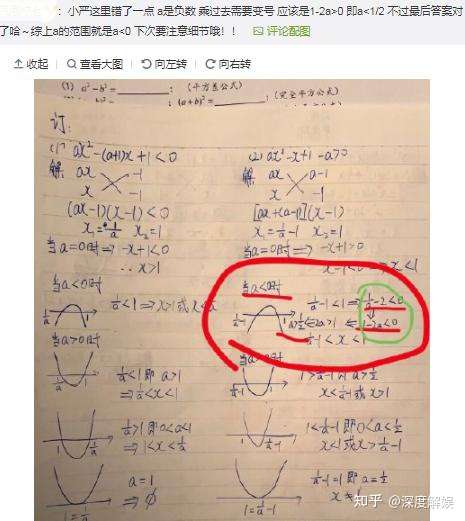 ：小严这里错了一点 a是负数 乘过去需要变号 应该是1-2a>0 即a<1/2 不过最后答案对
了哈～综上a的范围就是a<0 下次要注意细节哦！！ 评论配图
收起 查看大图 向左转 向右转
(1) a²-b²= ; (平方差公式)
(a+b)²= ; (完全平方公式)
订:
(1) ax²-(a+1)x+1<0
(2) ax²-x+1-a>0
解 ax -1
x -1
解 ax a-1
x -1
(ax-1)(x-1)<0
[ax+(a-1)](x-1)
x₁=1/a x₂=1
x₁=1/a-1 x₂=1
当a=0时 ⇒ -x+1<0
当a=0时 ⇒ -x+1>0
∴x>1
x-1<0 ⇒ x<1
当a<0时
当a<0时
1/a<1 ⇒ x>1或x<1/a
1/a-1<1 ⇒ 1/a-2<0
a>1/2 ⇐ 2a>1 ⇐ 1-2a<0
1/a-1<x<1
当a>0时
当a>0时
1/a<1即a>1
⇒1/a<x<1
1>1/a-1即a>1/2
x<1/a-1或x>1
1/a>1即0<a<1
⇒1<x<1/a
1<1/a-1即0<a<1/2
x<1或x>1/a-1
a=1
⇒∅
1=1/a
1/a-1=1即a=1/2
1=1/a-1
知乎 @深度解娱